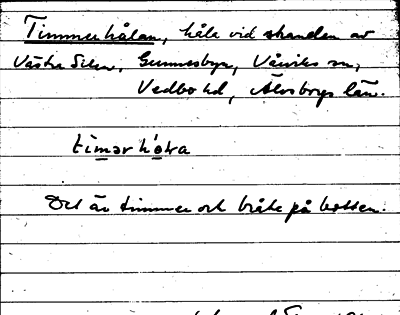 Timmerhålan, håla vid stranden av
Västra Silen, Gunnesbyn, Vårviks sn,
Vedbo hd, Älvsborgs län.
timər hóla
Det är timmer och bråte på botten.